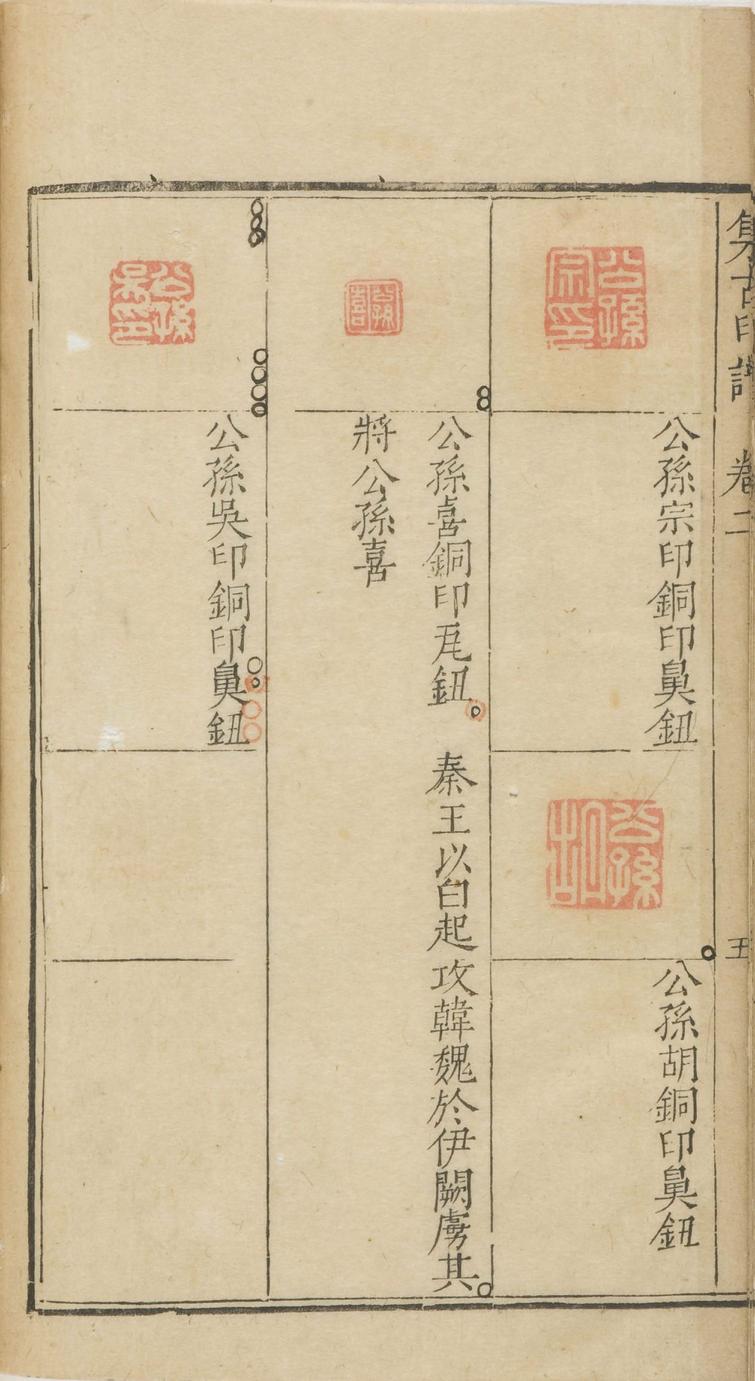 集古印譜 卷二 五
公孫宗印
公孫宗印銅印鼻鈕
公孫胡
公孫胡銅印鼻鈕
公孫喜
公孫喜銅印瓦鈕 秦王以白起攻韓魏於伊闕虜其
將公孫喜
公孫吳印
公孫吳印銅印鼻鈕